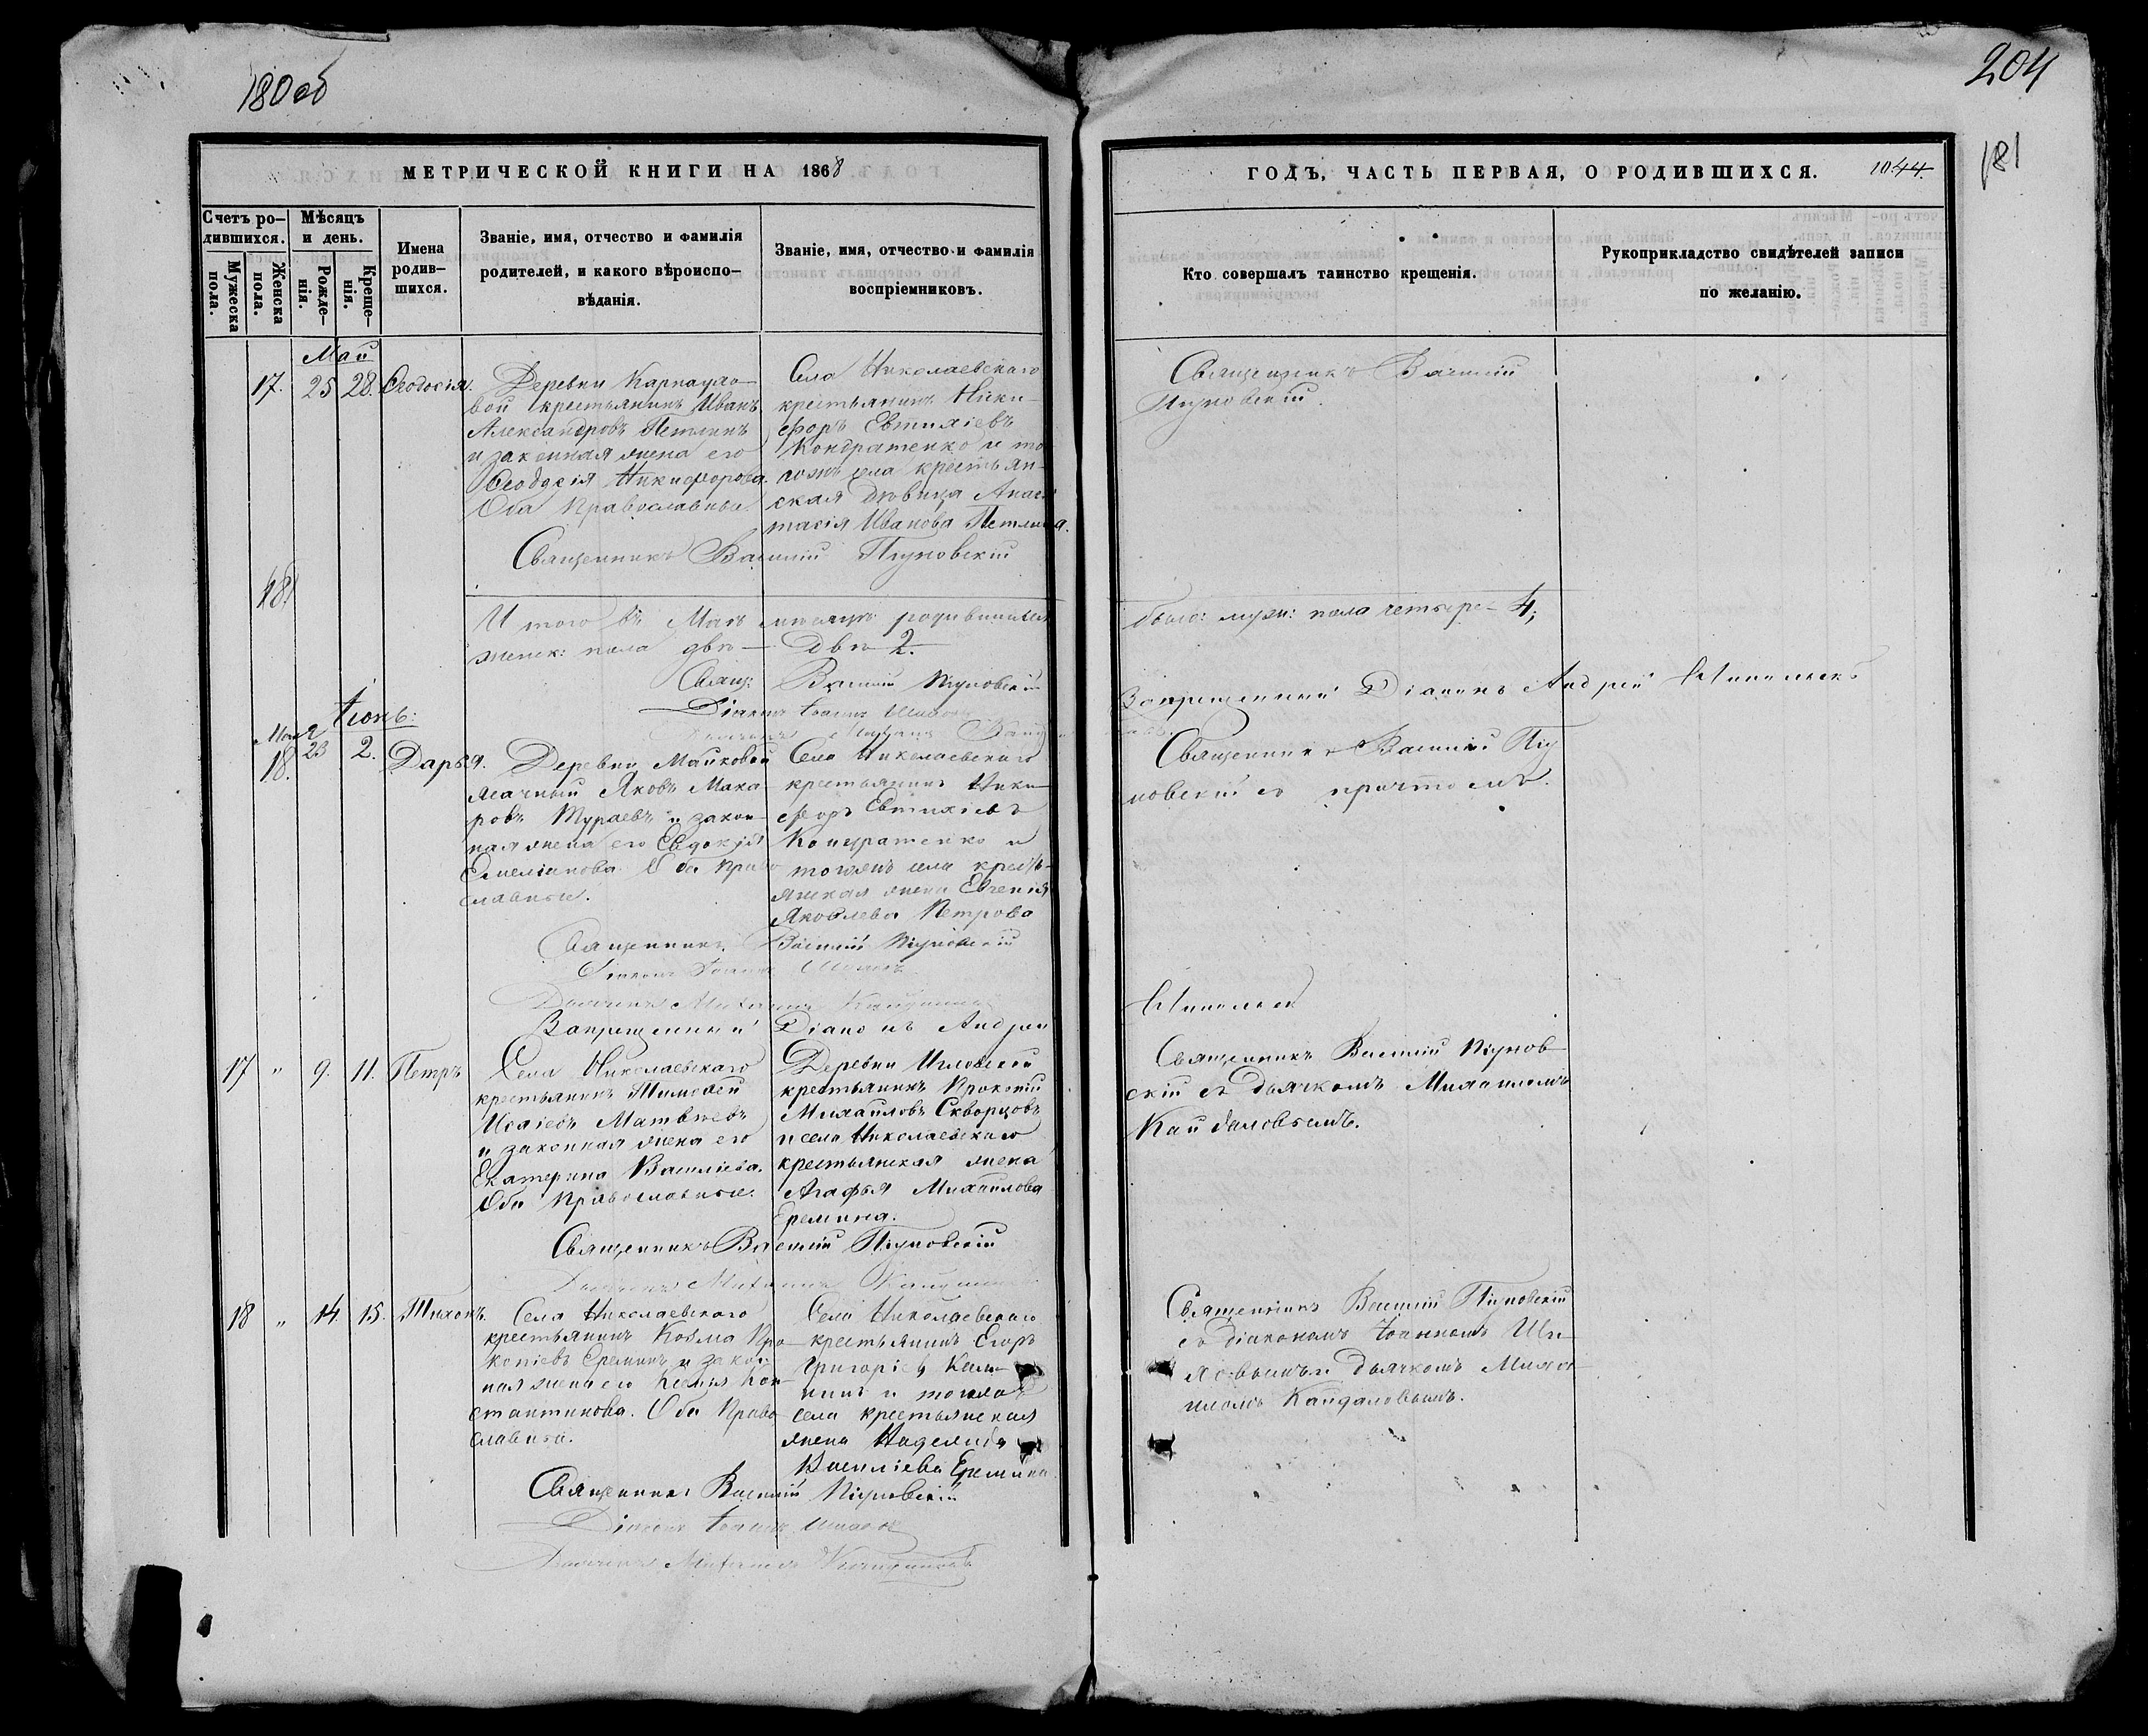 180 об
204
181
МЕТРИЧЕСКОЙ КНИГИ НА 1868
Счетъ ро-
дившихся.
Мужеска
пола.
Женска
пола.
Мѣсяцъ
и день.
Рожде-
нія.
Креще-
нія.
Имена
родив-
шихся.
Званіе, имя, отчество и фамилія
родителей, и какого вѣроиспо-
вѣданія.
Званіе, имя, отчество и фамилія
воспріемниковъ.
ГОДЪ, ЧАСТЬ ПЕРВАЯ, О РОДИВШИХСЯ.
1044.
Кто совершалъ таинство крещенія.
Рукоприкладство свидѣтелей записи
по желанію.
Май
17. 25 28. Ѳеодосія.
Деревни Карпауло-
вой крестьянинъ Иванъ
Александровъ Петлинъ
и законная жена его
Ѳеодосія Никифорова.
Оба православные.
Села Николаевскаго
крестьянинъ Ники-
форъ Евтихіевъ
Кондратенко и то
гожъ села крестьян-
ская дѣвица Анас
тасія Иванова Петлина.
Священникъ Василій
Священникъ Василій
18
Итого въ Маѣ мѣсяцѣ родившихся
женск: пола двѣ — Двѣ 2.
было: муж: пола четыре — 4;
Свящ: Василій
Діаконъ Іоаннъ
Запрещенный Діаконъ Андрей
Іюнь:
Мая
18. 23 2. Дарья.
Деревни Майковой
ясачный Яковъ Мака
ровъ Тураевъ и закон-
ная жена его Евдокія
Емеліанова. Оба право
славные.
Села Николаевскаго
крестьянинъ Ники-
форъ Евтихіевъ
Кондратенко и
тогожъ села кресть-
янская жена Евгенія
Яковлева Петрова
Священникъ Василій
съ причтомъ.
Священникъ Василій
Діаконъ Іоаннъ
Дьячекъ Михаилъ
Запрещенный Діаконъ Андрей
17 " 9. 11. Петръ
Села Николаевскаго
крестьянинъ Тимоѳей
Исаіевъ Матвѣевъ
и законная жена его
Екатерина Василіева.
Оба православные.
Деревни
крестьянинъ Прокопій
Михайловъ Скворцовъ
и села Николаевскаго
крестьянская жена
Агафья Михайлова
Еремина.
Священникъ Василій
скій съ дьячкомъ Михаиломъ
Кайдаловымъ.
Священникъ Василій
Дьячекъ Михаилъ
18 " 14. 15. Тихонъ.
Села Николаевскаго
крестьянинъ Козма Про
копіевъ Ереминъ и закон
ная жена его Ксенія Кон-
стантинова. Оба право
славные.
Села Николаевскаго
крестьянинъ Егоръ
Григоріевъ
и тогожъ
села крестьянская
жена Надежда
Василіева Еремина.
Священникъ Василій
съ діакономъ Іоанномъ
дьячкомъ Миха
иломъ Кайдаловымъ.
Священникъ Василій
Діаконъ Іоаннъ
Дьячекъ Михаилъ